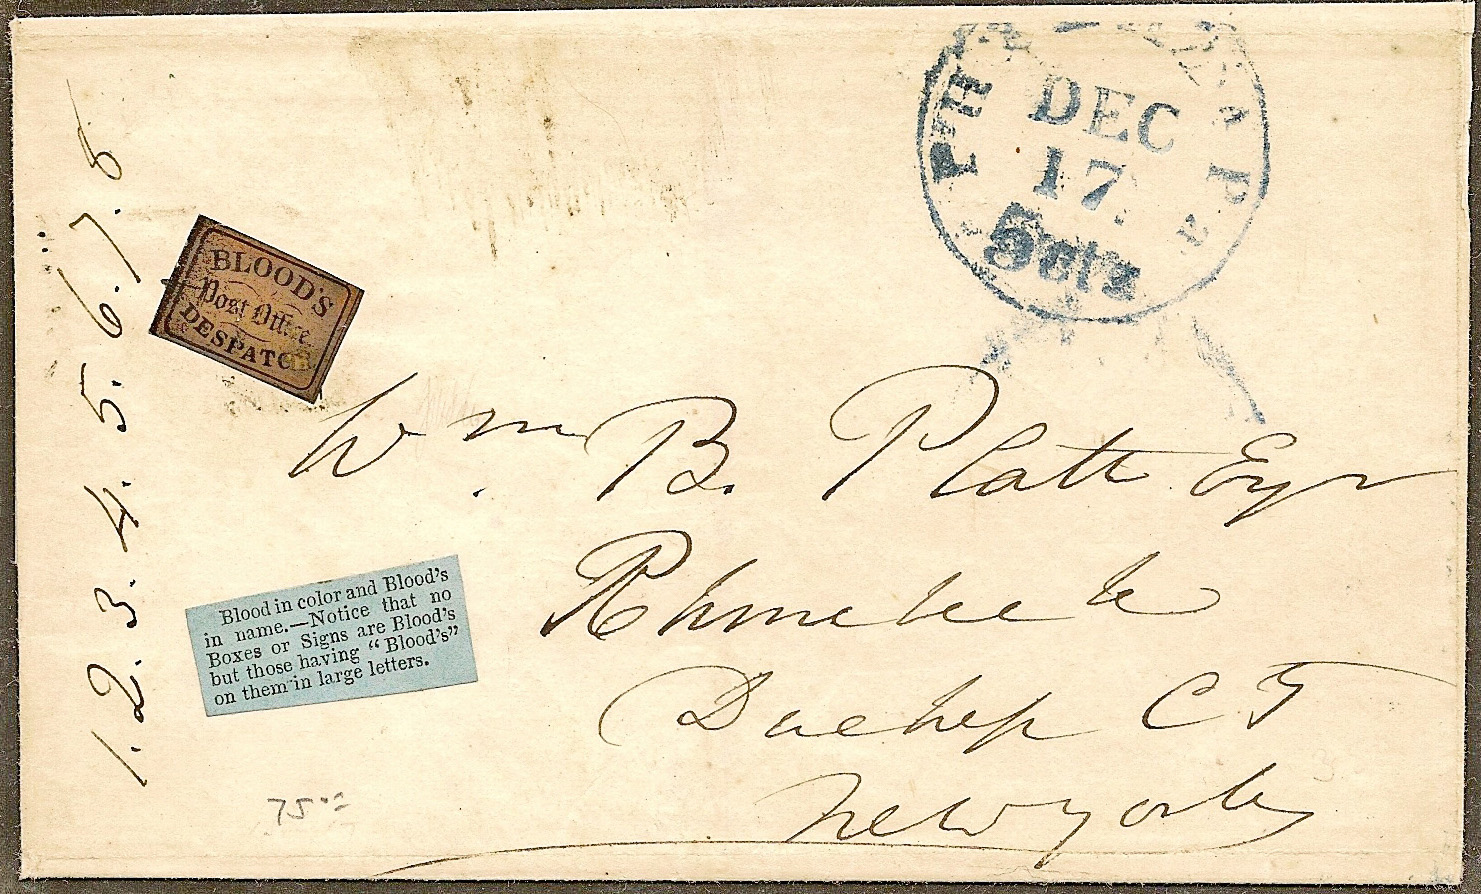 PHILADA Pa
DEC
17
5 cts
1. 2. 3. 4. 5. 6. 7. 8
BLOOD'S
Post Office
DESPATCH
Wm. B. Platt Esqr
Rhinebeck
Duchess CT
New York
Blood in color and Blood's
in name.—Notice that no
Boxes or Signs are Blood's
but those having "Blood's"
on them in large letters.
75.00